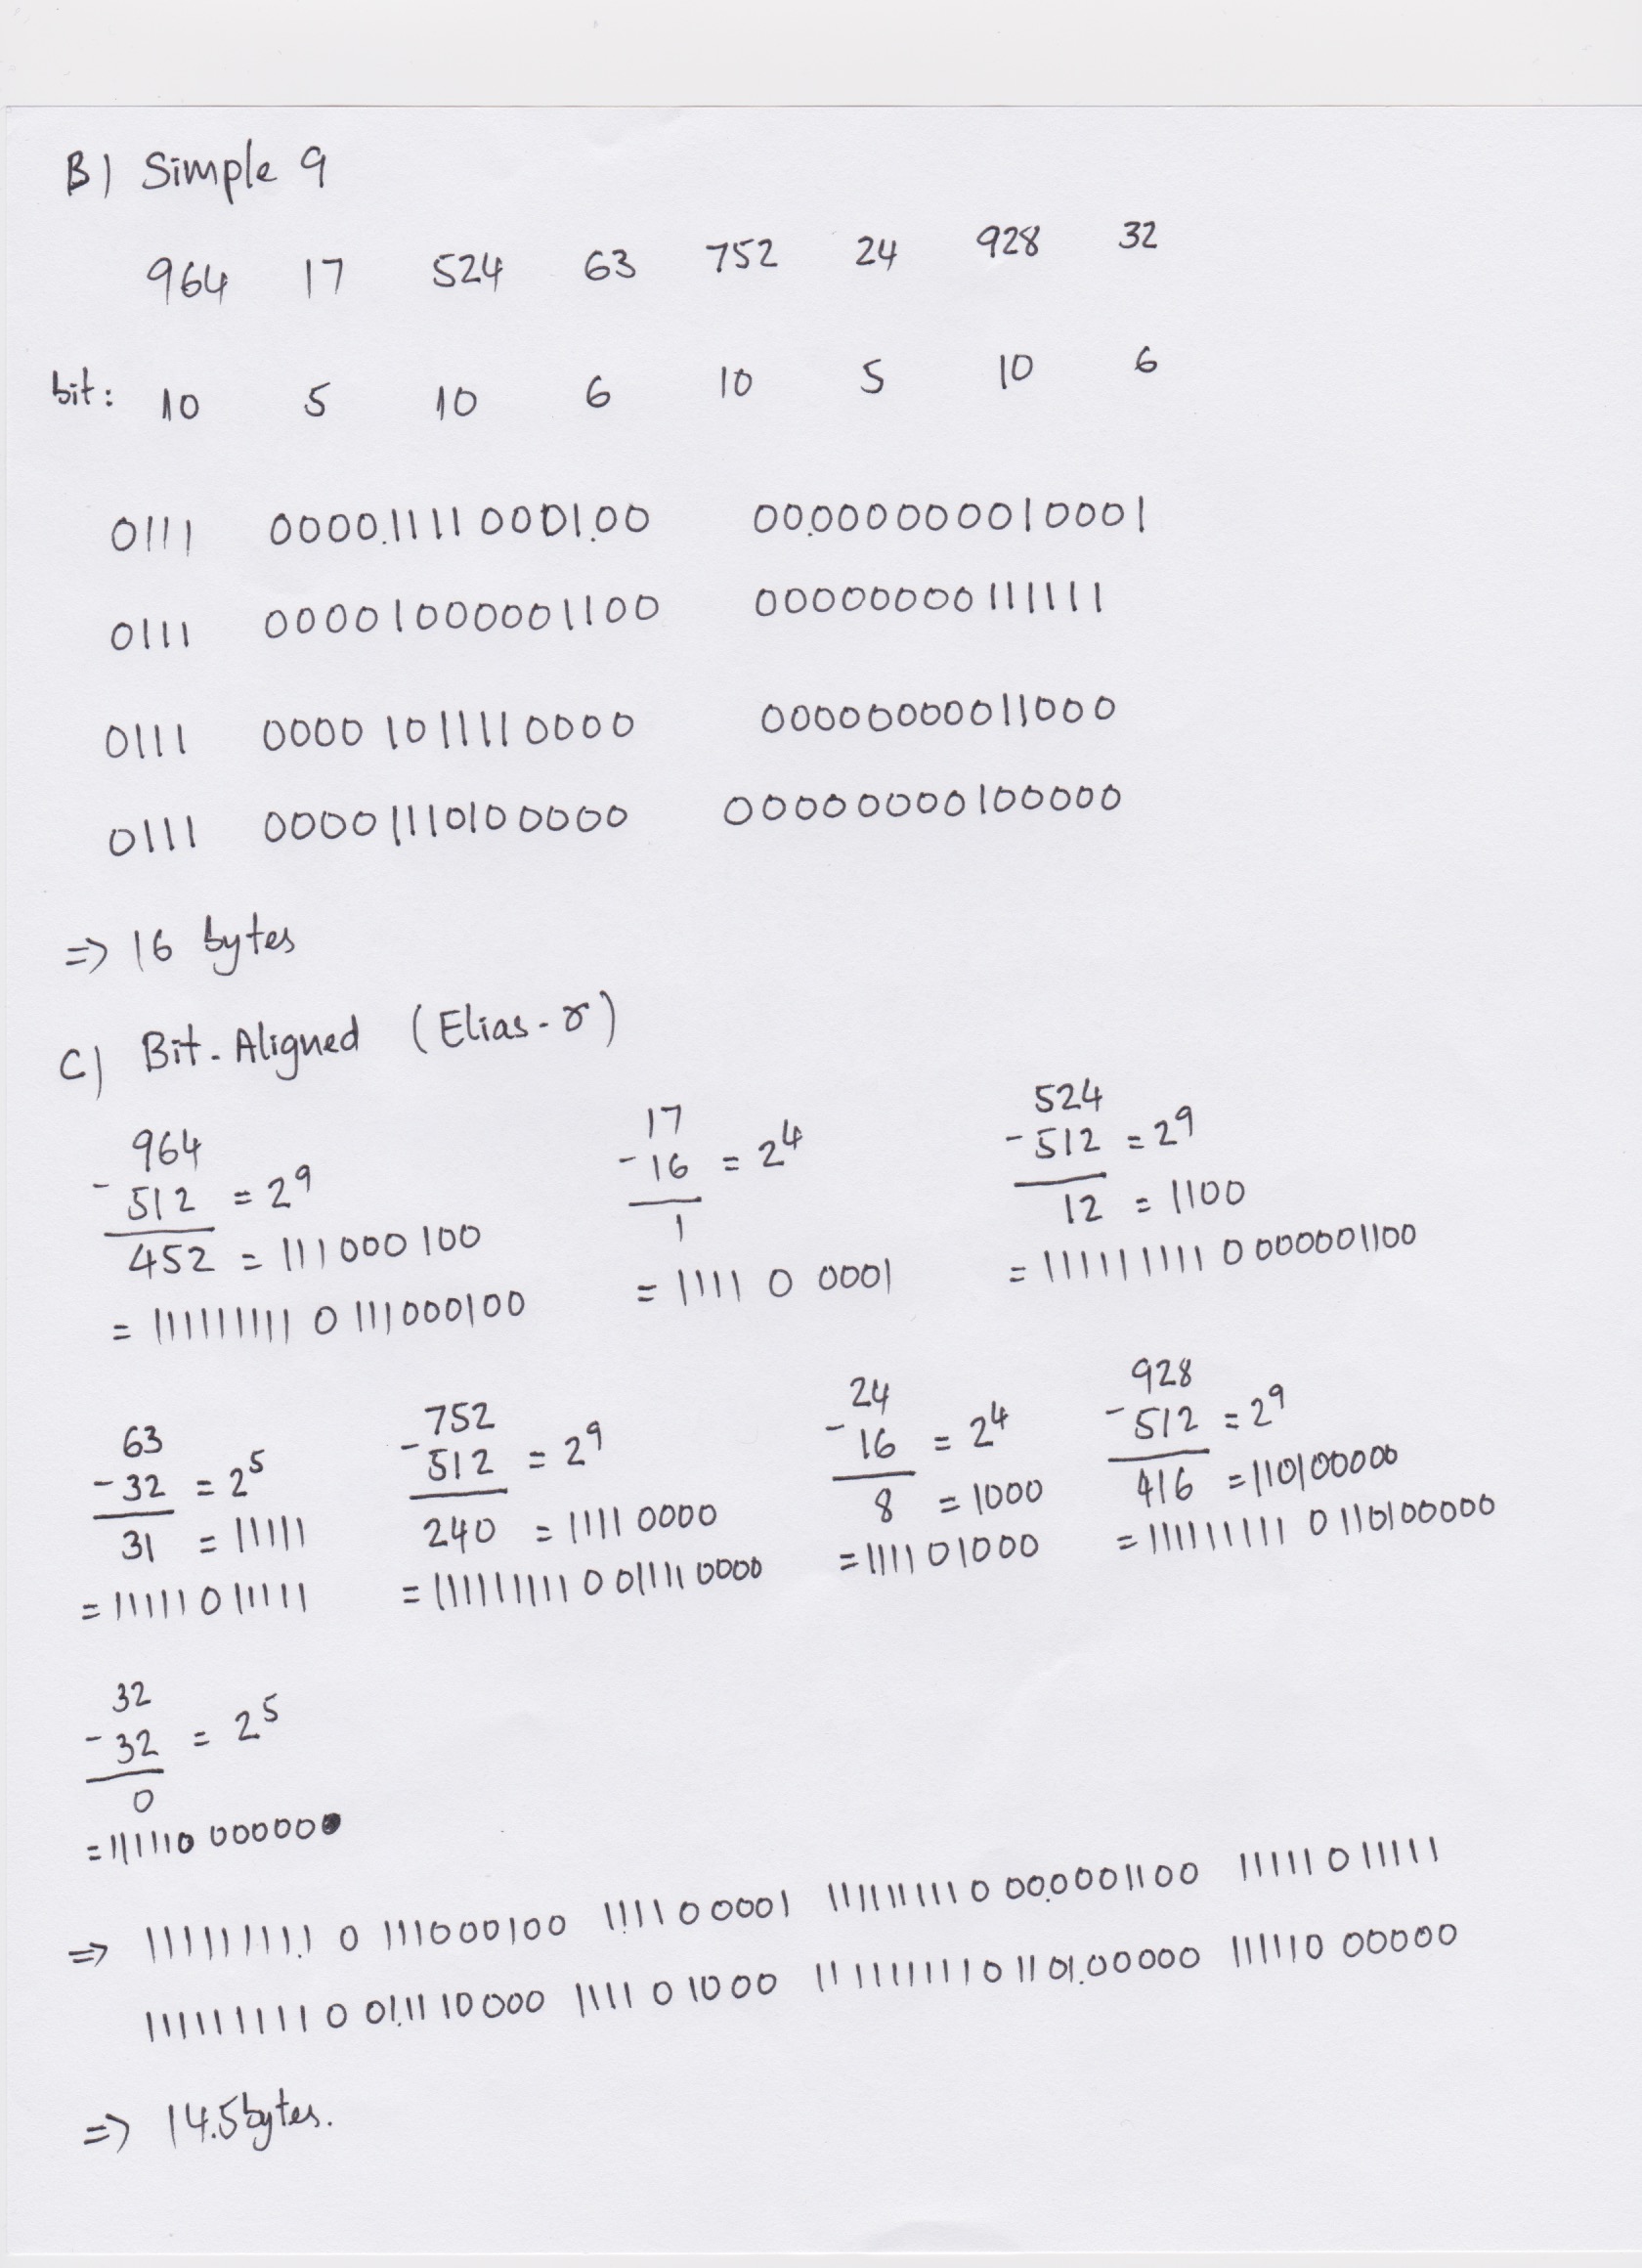 B) Simple 9
964 17 524 63 752 24 928 32
bit: 10 5 10 6 10 5 10 6
0111 0000.11110001.00 00.000000010001
0111 00001000001100 00000000111111
0111 00001011110000 00000000011000
0111 00001110100000 00000000100000
=> 16 bytes
C) Bit-Aligned (Elias-γ)
964 17 524
- 512 = 2^9 - 16 = 2^4 - 512 = 2^9
452 = 111000100 1 12 = 1100
= 111111111 0 111000100 = 1111 0 0001 = 111111111 0 000001100
63 752 24 928
- 32 = 2^5 - 512 = 2^9 - 16 = 2^4 - 512 = 2^9
31 = 11111 240 = 11110000 8 = 1000 416 = 110100000
= 11111 0 11111 = 111111111 0 011110000 = 1111 0 1000 = 111111111 0 110100000
32
- 32 = 2^5
0
= 111110 00000
=> 111111111 0 111000100 1111 0 0001 111111111 0 000001100 11111 0 11111
111111111 0 011110000 1111 0 1000 111111111 0 110100000 111110 00000
=> 14.5bytes.